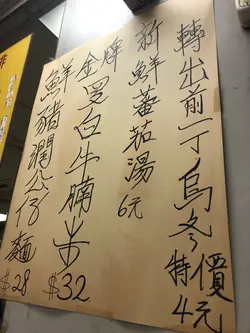 轉出前一丁烏冬特價4元
新鮮蕃茄湯6元
金牌罗白牛腩米 $32
鮮豬潤公仔麵 $28